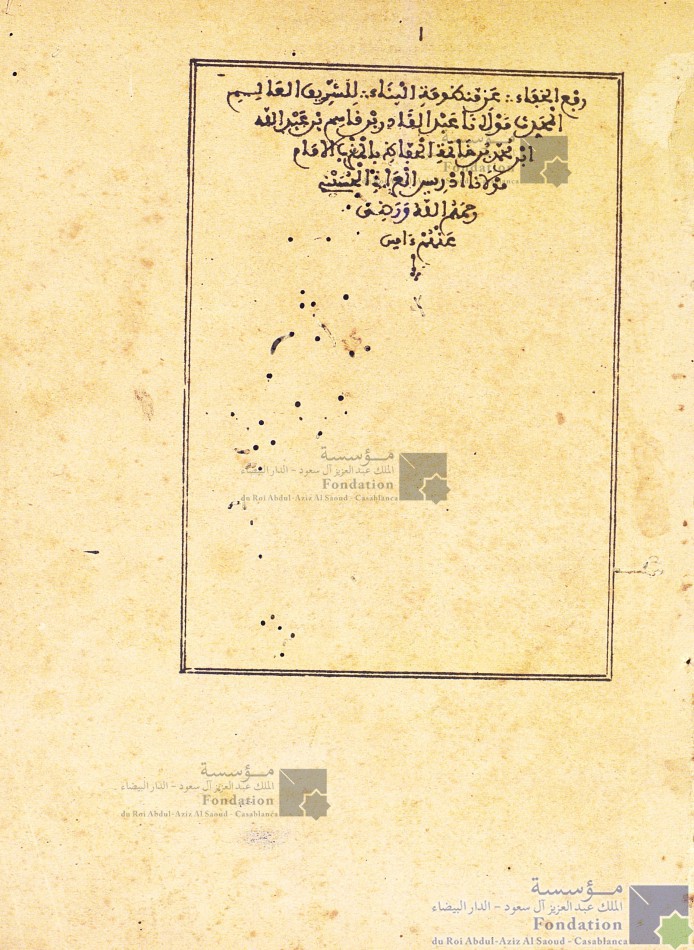 ١
رفع الخفاء عن منظومة البناء للشريف العالم
مولانا عبد القادر بن قاسم بن عبد الله
ابن محمد بن خاتمة بالمغرب الإمام
مولانا ادريس العراقي الحسيني
رحمهم الله ورضي
عنهم ءامين
مؤسسة
الملك عبد العزيز آل سعود - الدار البيضاء
Fondation
du Roi Abdul-Aziz Al Saoud - Casablanca
مؤسسة
الملك عبد العزيز آل سعود - الدار البيضاء
Fondation
du Roi Abdul-Aziz Al Saoud - Casablanca
مؤسسة
الملك عبد العزيز آل سعود - الدار البيضاء
Fondation
du Roi Abdul-Aziz Al Saoud - Casablanca